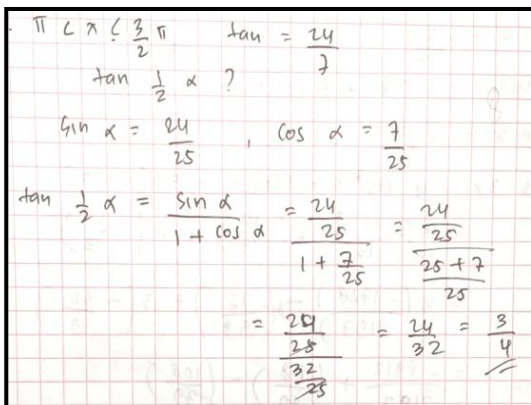 π < x < 3/2 π tan = 24/7
tan 1/2 α ?
Sin α = 24/25 , cos α = 7/25
tan 1/2 α = sin α / (1 + cos α) = (24/25) / (1 + 7/25) = (24/25) / ((25 + 7)/25)
= (24/25) / (32/25) = 24/32 = 3/4